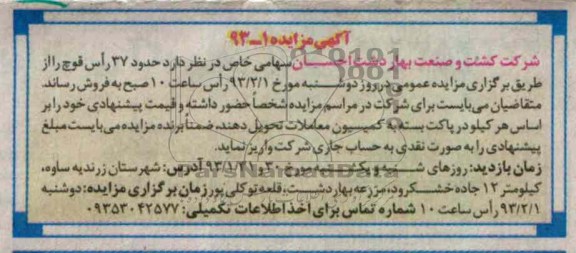 آگهی مزایده ۱ــ۹۳
شرکت کشت و صنعت بهار دشت احسان سهامی خاص در نظر دارد حدود ۳۷ رأس قوچ را از
طریق برگزاری مزایده عمومی در روز دوشنبه مورخ ۹۳/۲/۱ رأس ساعت ۱۰ صبح به فروش رساند.
متقاضیان می‌بایست برای شرکت در مراسم مزایده شخصاً حضور داشته و قیمت پیشنهادی خود را بر
اساس هر کیلو در پاکت بسته به کمیسیون معاملات تحویل دهند، ضمناً برنده مزایده می‌بایست مبلغ
پیشنهادی را به صورت نقدی به حساب جاری شرکت واریز نماید.
زمان بازدید: روزهای شنبه و یکشنبه مورخ ۳۰ و ۹۳/۱/۳۱ آدرس: شهرستان زرندیه ساوه،
کیلومتر ۱۲ جاده خشکرود، مزرعه بهاردشت، قلعه توکلی پور زمان برگزاری مزایده: دوشنبه
۹۳/۲/۱ رأس ساعت ۱۰ شماره تماس برای اخذ اطلاعات تکمیلی: ۰۹۳۵۳۰۴۲۵۷۷